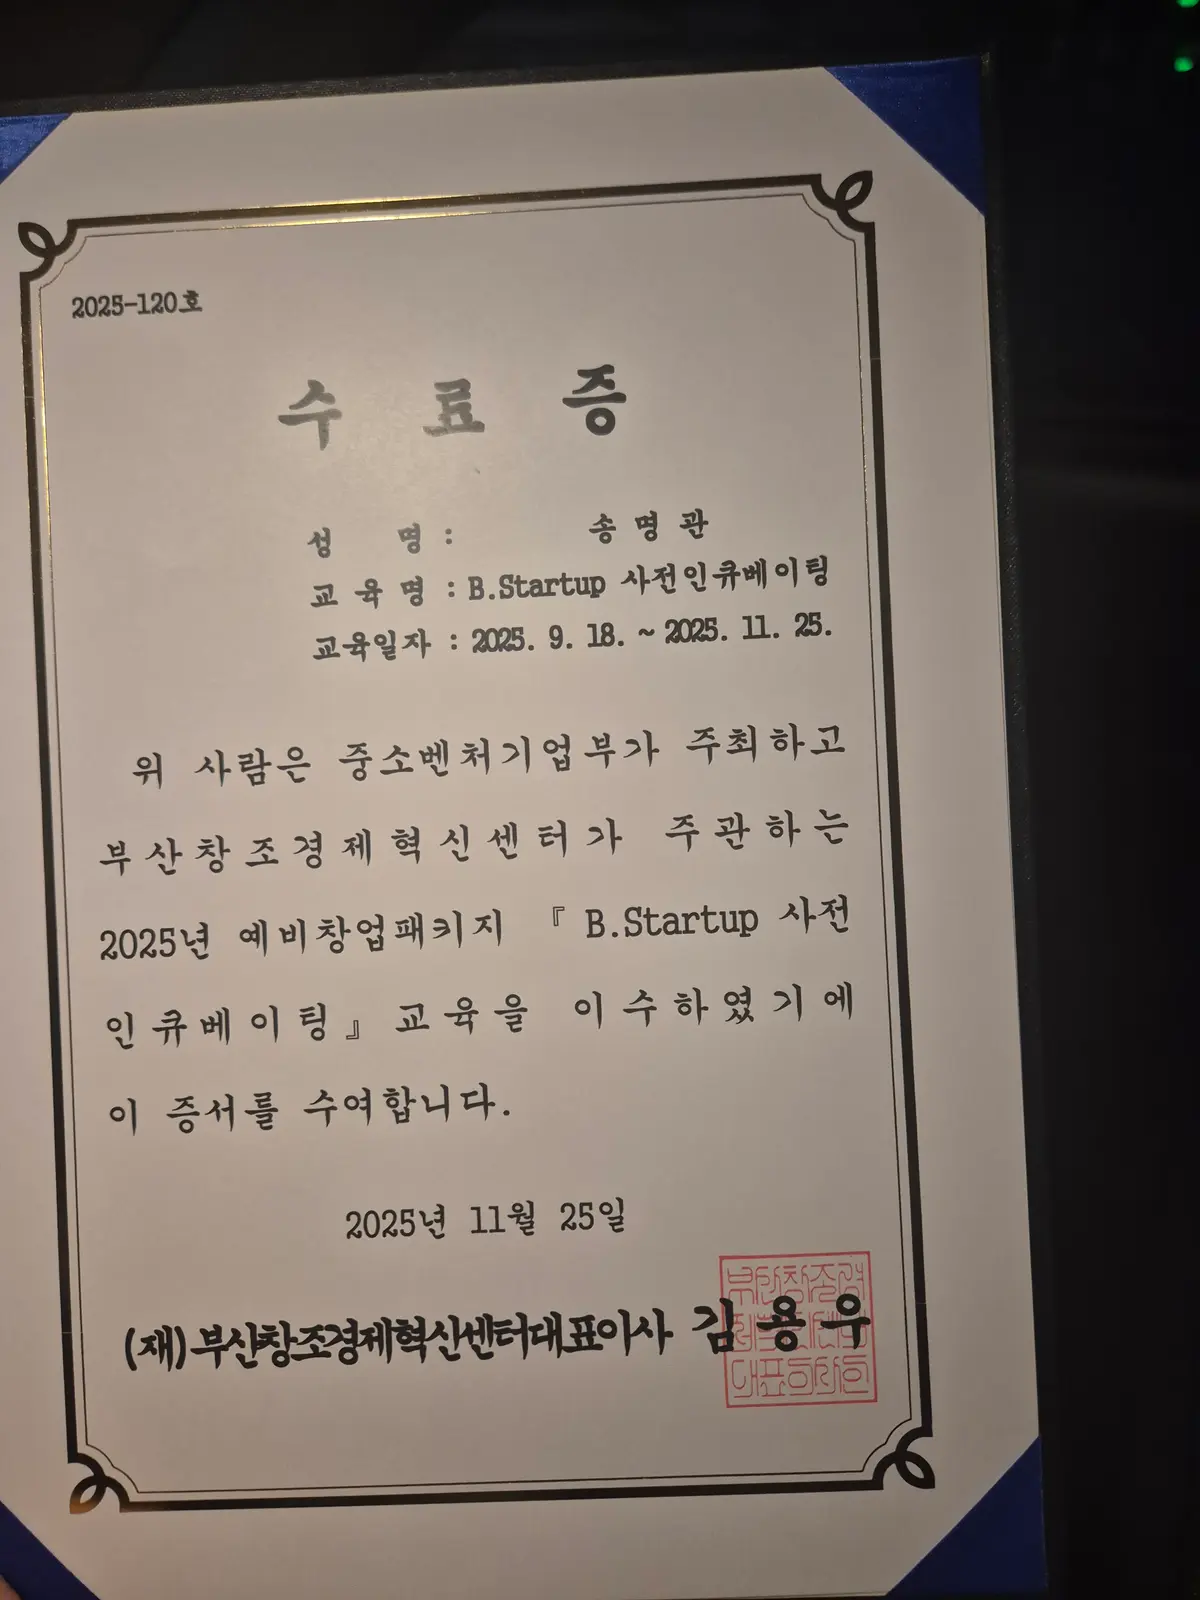 2025-120호
수 료 증
성 명 : 송 명 관
교 육 명 : B.Startup 사전인큐베이팅
교육일자 : 2025. 9. 18. ~ 2025. 11. 25.
위 사람은 중소벤처기업부가 주최하고
부산창조경제혁신센터가 주관하는
2025년 예비창업패키지 『B.Startup 사전
인큐베이팅』교육을 이수하였기에
이 증서를 수여합니다.
2025년 11월 25일
(재)부산창조경제혁신센터대표이사 김용우